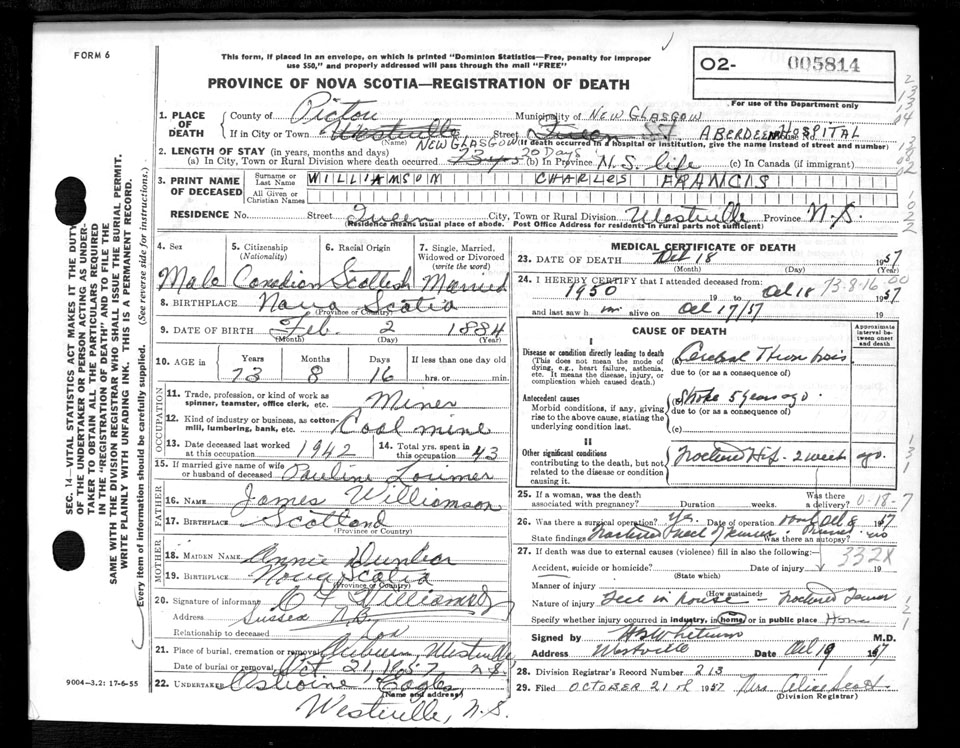 FORM 6
This form, if placed in an envelope, on which is printed "Dominion Statistics—Free, penalty for improper
use $50," and properly addressed will pass through the mail "FREE"
PROVINCE OF NOVA SCOTIA—REGISTRATION OF DEATH
O2- 005814
For use of the Department only
1. PLACE OF DEATH
County of Pictou Municipality of NEW GLASGOW
If in City or Town Westville, Street Queen St ABERDEEN HOSPITAL
(Name) NEW GLASGOW (If death occurred in a hospital or institution, give the name instead of street and number)
2. LENGTH OF STAY (in years, months and days) 20 Days
(a) In City, Town or Rural Division where death occurred 73 yrs (b) In Province N.S. life (c) In Canada (if immigrant)
3. PRINT NAME OF DECEASED
Surname or Last Name WILLIAMSON CHARLES FRANCIS
All Given or Christian Names
RESIDENCE No. Street Queen City, Town or Rural Division Westville Province N.S.
(Residence means usual place of abode. Post Office Address for residents in rural parts not sufficient)
4. Sex Male
5. Citizenship (Nationality) Canadian
6. Racial Origin Scottish
7. Single, Married, Widowed or Divorced (write the word) Married
8. BIRTHPLACE Nova Scotia
(Province or Country)
9. DATE OF BIRTH Feb. 2 1884
(Month) (Day) (Year)
10. AGE in Years Months Days If less than one day old
73 8 16 hrs. or min.
OCCUPATION
11. Trade, profession, or kind of work as spinner, teamster, office clerk, etc. Miner
12. Kind of industry or business, as cotten-mill, lumbering, bank, etc. Coal mine
13. Date deceased last worked at this occupation 1942
14. Total yrs. spent in this occupation 43
15. If married give name of wife or husband of deceased Pauline Lorimer
FATHER
16. NAME James Williamson
17. BIRTHPLACE Scotland
(Province or Country)
MOTHER
18. MAIDEN NAME Annie Dunbar
19. BIRTHPLACE Nova Scotia
(Province or Country)
20. Signature of informant C F Williamson
Address Sussex N.B.
Relationship to deceased Son
21. Place of burial, cremation or removal Auburn, Westville, N.S.
Date of burial or removal Oct 21, 1957
22. UNDERTAKER
(Name and address)
Westville, N.S.
9004-3.2: 17-6-55
MEDICAL CERTIFICATE OF DEATH
23. DATE OF DEATH Oct 18 1957
(Month) (Day) (Year)
24. I HEREBY CERTIFY that I attended deceased from: 73-8-16
1950 19 to Oct 18 1957
and last saw h im alive on Oct 17/57 19
CAUSE OF DEATH
Approximate interval between onset and death
I
Disease or condition directly leading to death (a) Cerebral Thrombosis
(This does not mean the mode of dying, e.g., heart failure, asthenia, etc. It means the disease, injury, or complication which caused death.
due to (or as a consequence of)
Antecedent causes (b) Stroke 5 years ago.
Morbid conditions, if any, giving rise to the above cause, stating the underlying condition last.
due to (or as a consequence of)
(c)
II
Other significant conditions contributing to the death, but not related to the disease or condition causing it.
Fractured Hip - 2 weeks ago.
25. If a woman, was the death associated with pregnancy? Duration weeks Was there a delivery? 0-18-7
26. Was there a surgical operation? Yes. Date of operation Oct 8 1957
State findings Fractured neck of femur was there an autopsy? no
27. If death was due to external causes (violence) fill in also the following: 332X
Accident, suicide or homicide? Date of injury 19
(State which)
Manner of injury
(How sustained)
Nature of injury Fell in house - fractured femur
Specify whether injury occurred in industry, in home or in public place Home
Signed by M.D.
Address Westville Date Oct 19 1957
28. Division Registrar's Record Number 213
29. Filed OCTOBER 21st 1957 Mrs Alice Scott
(Division Registrar)
SEC. 14—VITAL STATISTICS ACT MAKES IT THE DUTY
OF THE UNDERTAKER OR PERSON ACTING AS UNDER-
TAKER TO OBTAIN ALL THE PARTICULARS REQUIRED
IN THE "REGISTRATION OF DEATH" AND TO FILE THE
SAME WITH THE DIVISION REGISTRAR WHO SHALL ISSUE THE BURIAL PERMIT.
WRITE PLAINLY WITH UNFADING INK. THIS IS A PERMANENT RECORD.
Every item of information should be carefully supplied. (See reverse side for instructions.)